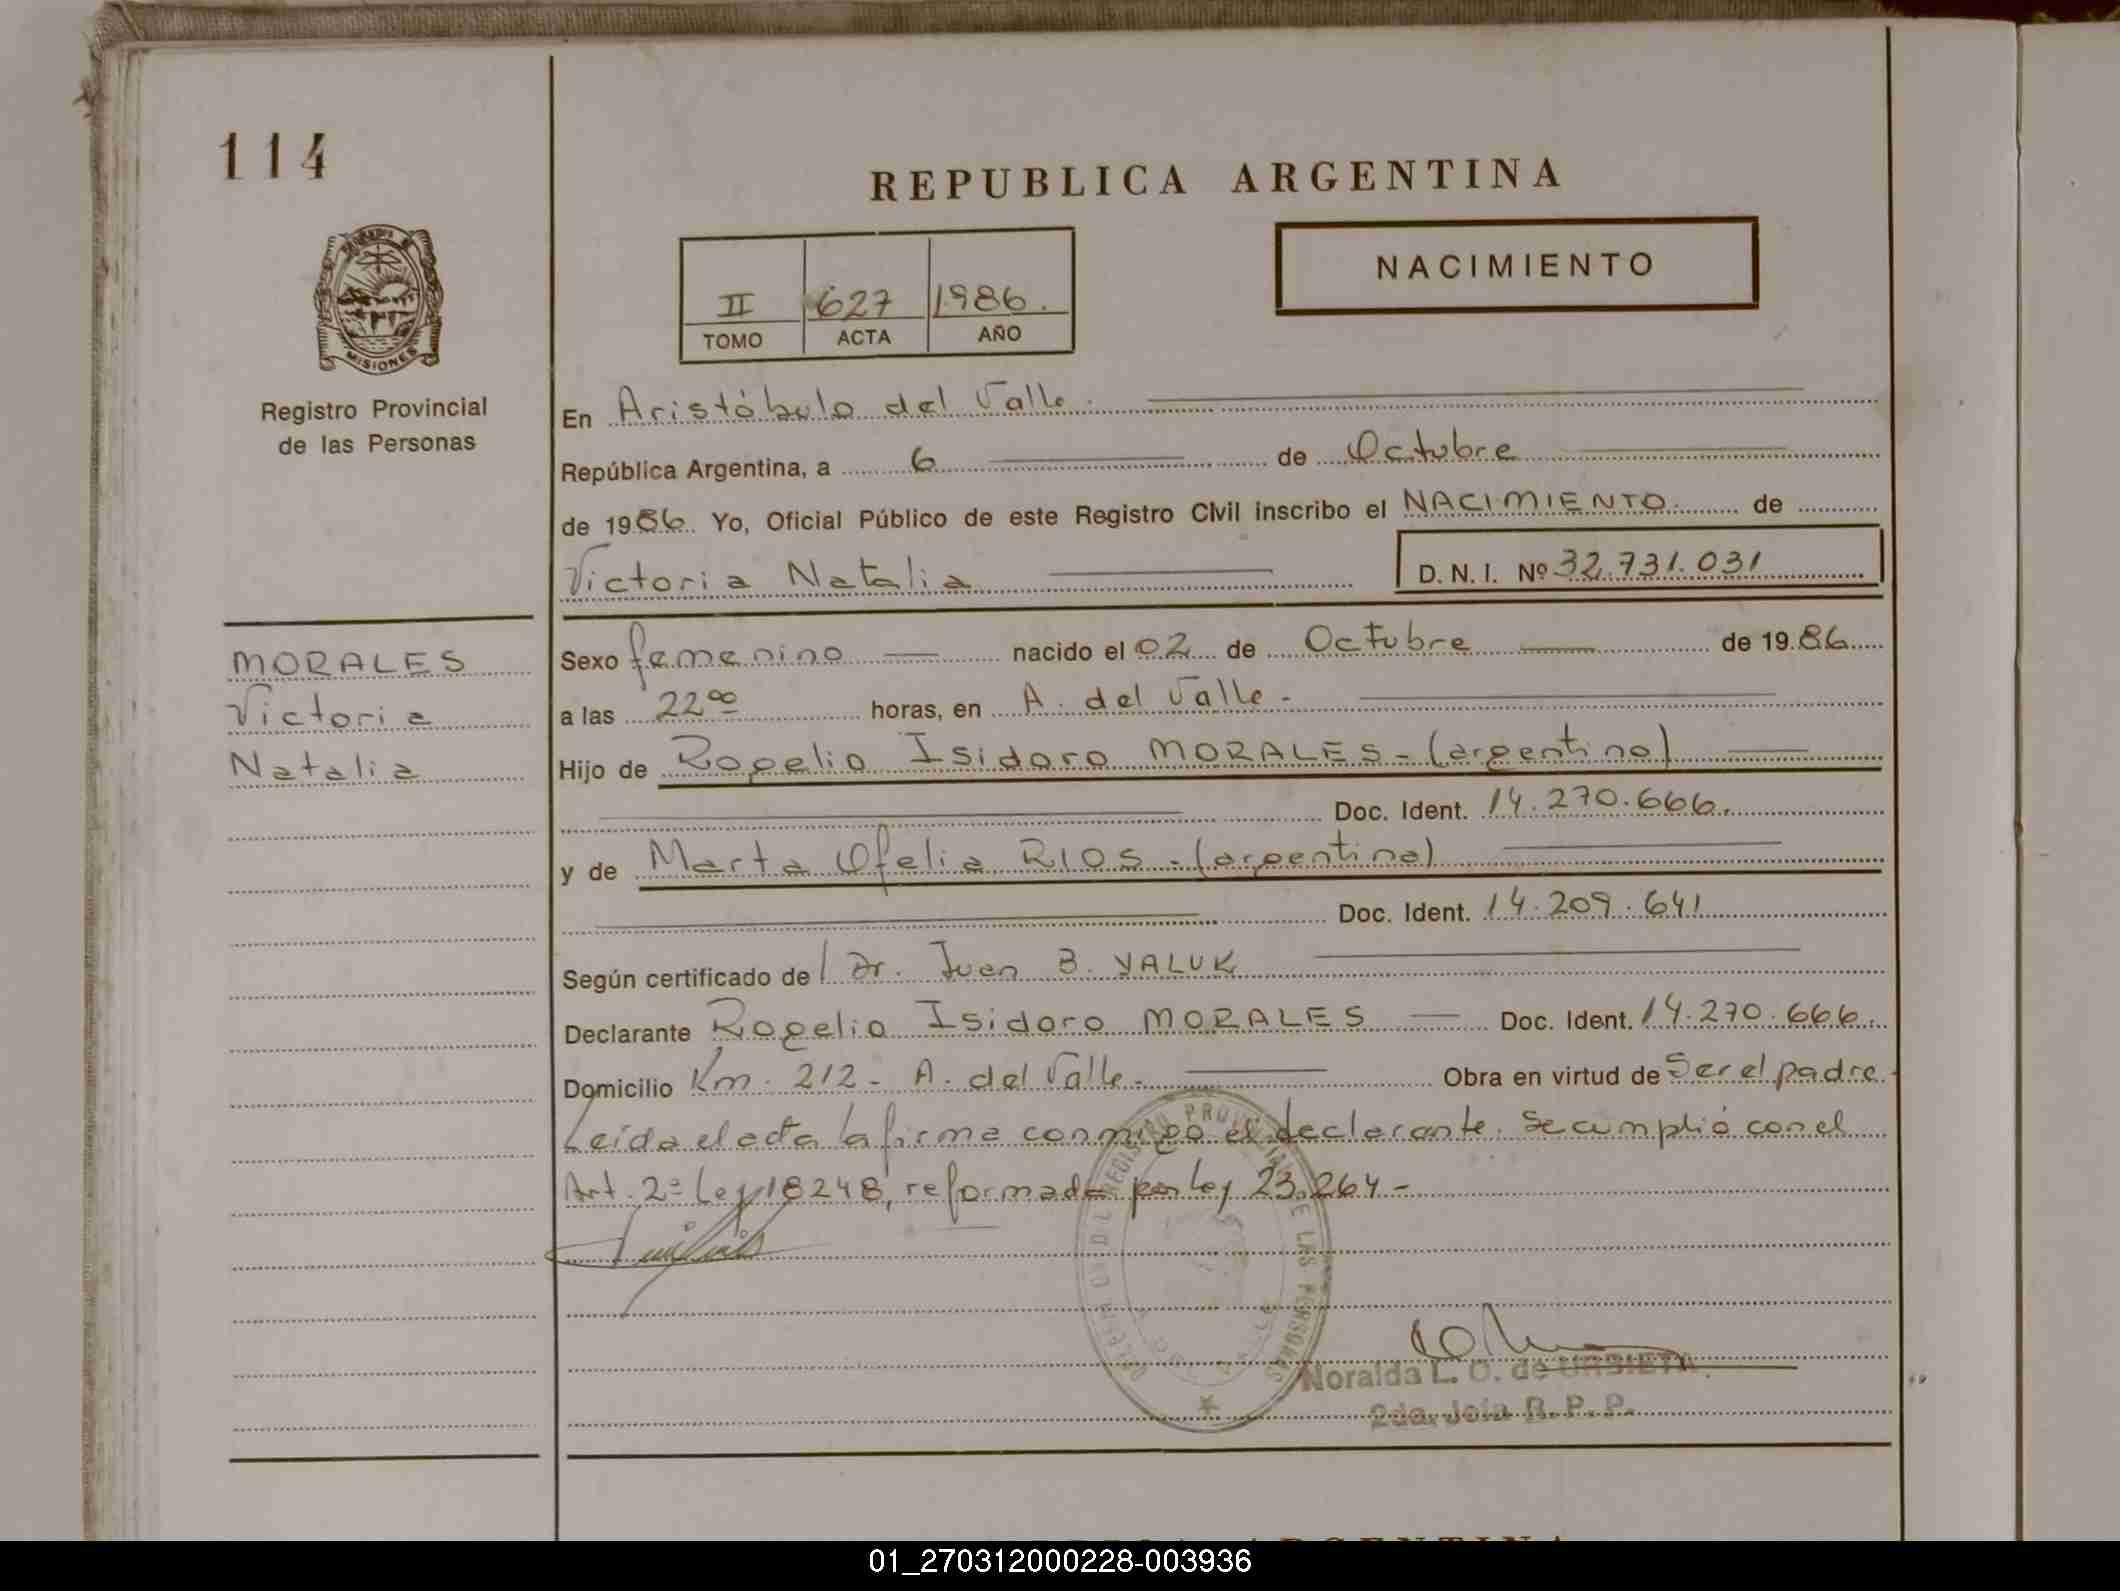 114
REPUBLICA ARGENTINA
NACIMIENTO
II 627 1986.
TOMO ACTA AÑO
MISIONES
Registro Provincial
de las Personas
En Aristóbulo del Valle.
República Argentina, a 6 de Octubre
de 1986. Yo, Oficial Público de este Registro Civil inscribo el NACIMIENTO de
Victoria Natalia D.N.I. Nº 32.731.031
MORALES
Victoria
Natalia
Sexo femenino nacido el 02 de Octubre de 1986
a las 22⁰⁰ horas, en A. del Valle -
Hijo de Rogelio Isidoro MORALES - (argentino)
Doc. Ident. 14.270.666.
y de Marta Ofelia RIOS - (argentina)
Doc. Ident. 14.209.641
Según certificado de Dr. Juan B. YALUK
Declarante Rogelio Isidoro MORALES Doc. Ident. 14.270.666.
Domicilio Km. 212 - A. del Valle. Obra en virtud de Ser el padre.
Leída el acta la firma conmigo el declarante. Se cumplió con el
Art. 2º Ley 18248, reformada por Ley 23.264 -
REGISTRO PROVINCIAL DE LAS PERSONAS
Noralda L. O. de URBIETA
2da. Jefa R. P. P.
ARGENTINA
01_270312000228-003936